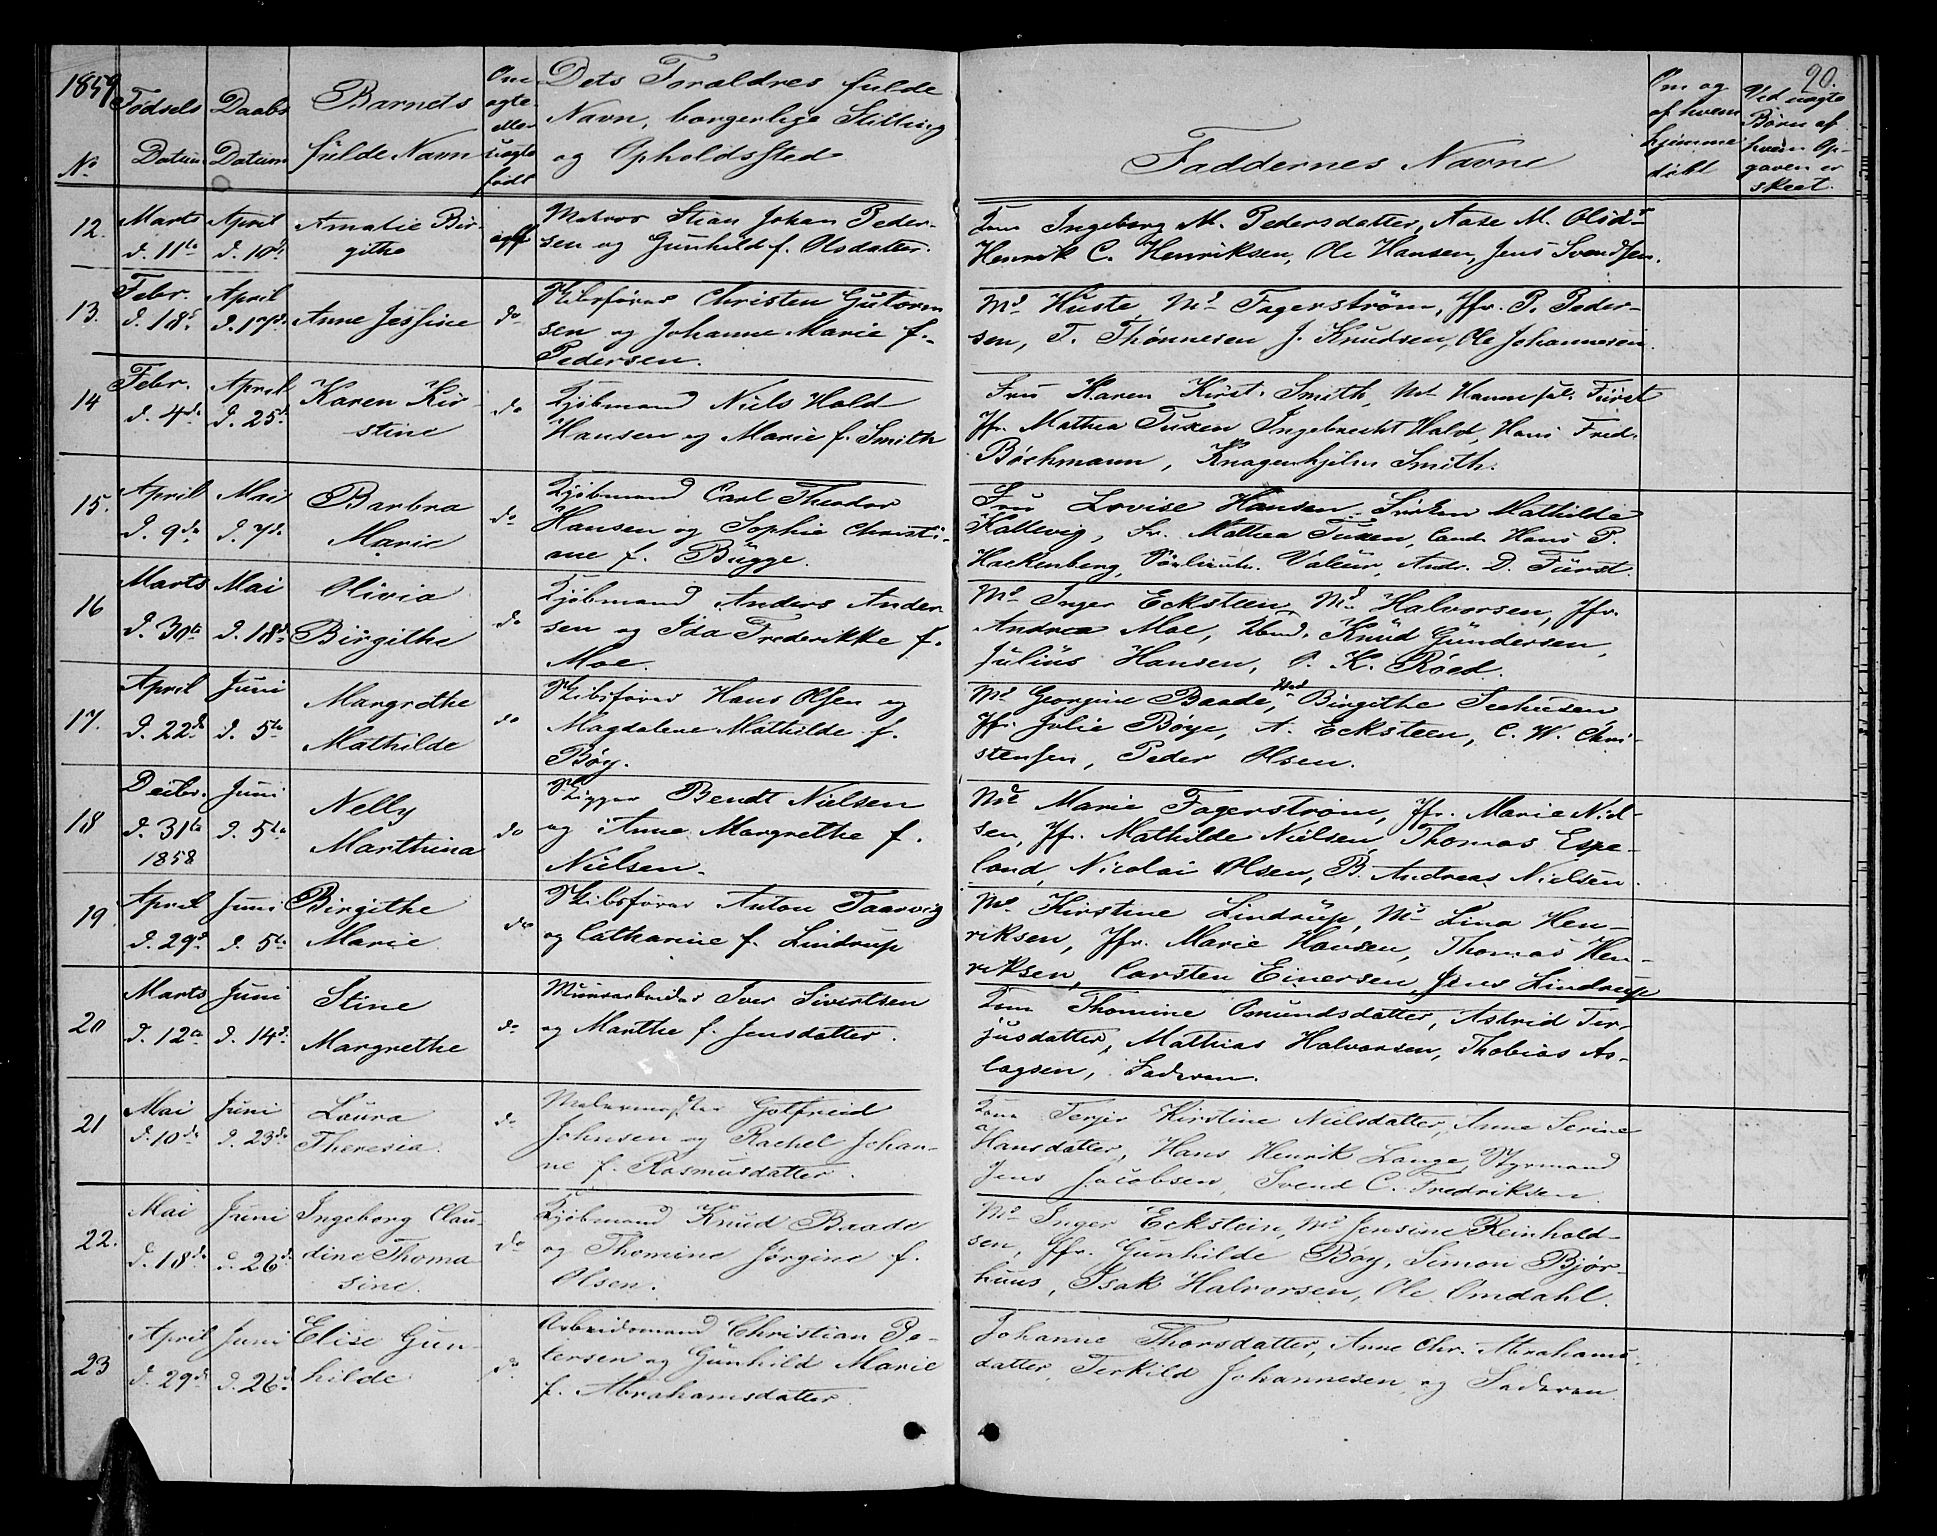 1859
20.
No
Fødsels Datum
Daabs Datum
Barnets fulde Navn
Om ægte eller uægte født
Dets Forældres fulde
Navn, borgerlige Stilling
og Opholdssted
Faddernes Navne
Om og af hvem hjemme døbt
Ved uægte Børn af hvem Opgaven er skeet.
12. Marts d. 11te April d. 10d Amalie Birgithe
Matros Stian Johan Peder-
sen og Gunhild f. Olsdatter.
Ingeborg M. Pedersdatter, Aase M. Olsdr
Henrik C. Henriksen, Ole Hansen, Jens Svendsen.
13. Febr. d. 18d April d. 17d Anne Jessine do
Skibsfører Christen Gutorm
sen og Johanne Marie f.
Pedersen.
Md Huste, Md Fagerstrøm, Jfr. P. Peder-
sen, F. Thønnesen J. Knudsen, Ole Johannesen.
14 Febr. d. 4de April d. 25d Karen Kirstine do
Kjøbmand Niels Hald
Hansen og Marie f. Smith
Fru Karen Kirst. Smith, Md Hanne Fürst
Jfr. Mathea Tuxen Ingebrecht Hald, Hans Fred.
Bøchmann, Knagenhjelm Smith.
15. April d. 9de Mai d. 7de Barbra Marie do
Kjøbmand Carl Theodor
Hansen og Sophie Christi-
ne f. Bugge.
Fru Lovise Hansen, Frøken Mathilde
Kallevig, Fr. Mathea Tuxen, Cand. Hans P.
Hackenberg, Valeur, Andr. D. Fürst.
16 Marts d. 30te Mai d. 18d Olivia Birgithe do
Kjøbmand Anders Ander
sen og Ida Frederikke f.
Moe.
Md Inger Ecksteen, Md Halvorsen, Jfr.
Andrea Moe, Knud Gundersen,
Julius Hansen, O. K. Røed.
17. April d. 22de Juni d. 5te Margrethe Mathilde do
Skibsfører Hans Olsen og
Magdalene Mathilde f.
Bøy.
Md Georgine Baade, Md Birgithe Seehusen
Jfr. Julie Bøye, A. Ecksteen, C. W. Chri-
stensen, Peder Olsen.
18 Decbr. d. 31te 1858 Juni d. 5te Nelly Marthina do
Rigger Bendt Nielsen
og Anne Margrethe f.
Nielsen.
Md Marie Fagerstrøm, Jfr. Marie Niel-
sen, Jfr. Mathilde Nielsen, Thomas Espe-
land, Nicolai Olsen, B. Andreas Nielsen.
19 April d. 29d Juni d. 5te Birgithe Marie do
Skibsfører Anton Taarvig
og Catharine f. Lindrup
Md Kirstine Lindrup, Md Lina Hen-
riksen, Jfr. Marie Hansen, Thomas Hen-
riksen, Carsten Einersen, Jens Lindrup
20 Marts d. 12te Juni d. 14d Stine Margrethe do
Murarbeider Iver Sivertsen
og Marthe f. Jensdatter.
Thomine Omundsdatter, Astrid Ter-
jusdatter, Mathias Halvorsen, Thobias As-
lagsen, Faderen.
21 Mai d. 10de Juni d. 23de Laura Theresia. do
Malermester Gotfreid
Johnsen og Rachel Johan-
ne f. Rasmusdatter.
Terjer Kirstine Nielsdatter, Anne Serine
Hansdatter, Hans Henrik Lange, Styrmand
Jens Jacobsen, Svend C. Fredriksen.
22. Mai d. 18de Juni d. 26d Ingeborg Claudine Thomasine. do
Kjøbmand Knud Baade
og Thomine Jørgine f.
Olsen.
Md Inger Eckstein, Md Jensine Reinhold-
sen, Jfr. Gunhilde Bøy, Simon Bjør-
huus, Isak Halvorsen, Ole Omdahl.
23 April d. 29d Juni d. 26d Elise Gunhilde do
Arbeidsmand Christian Pe-
tersen og Gunhild Marie
f. Abrahamsdatter.
Johanne Thorsdatter, Anne Chr. Abrahams-
datter, Terkild Johannesen, og Faderen